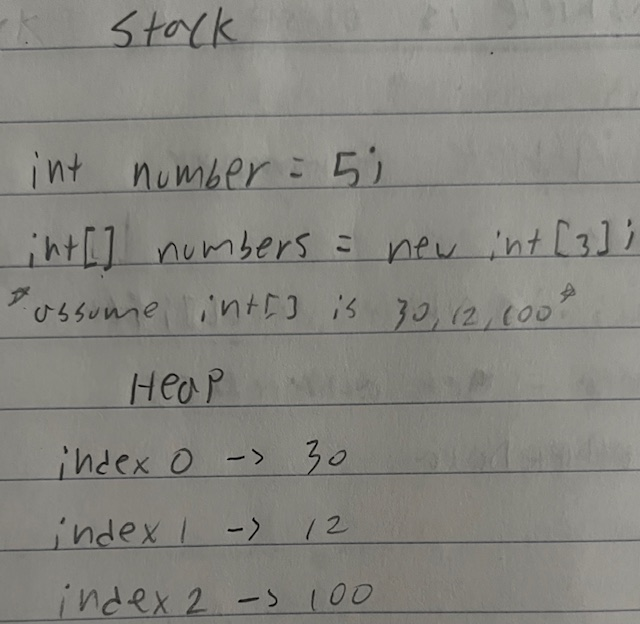 Stack
int number = 5;
int[] numbers = new int[3];
*assume int[] is 30, 12, 100*
Heap
index 0 -> 30
index 1 -> 12
index 2 -> 100